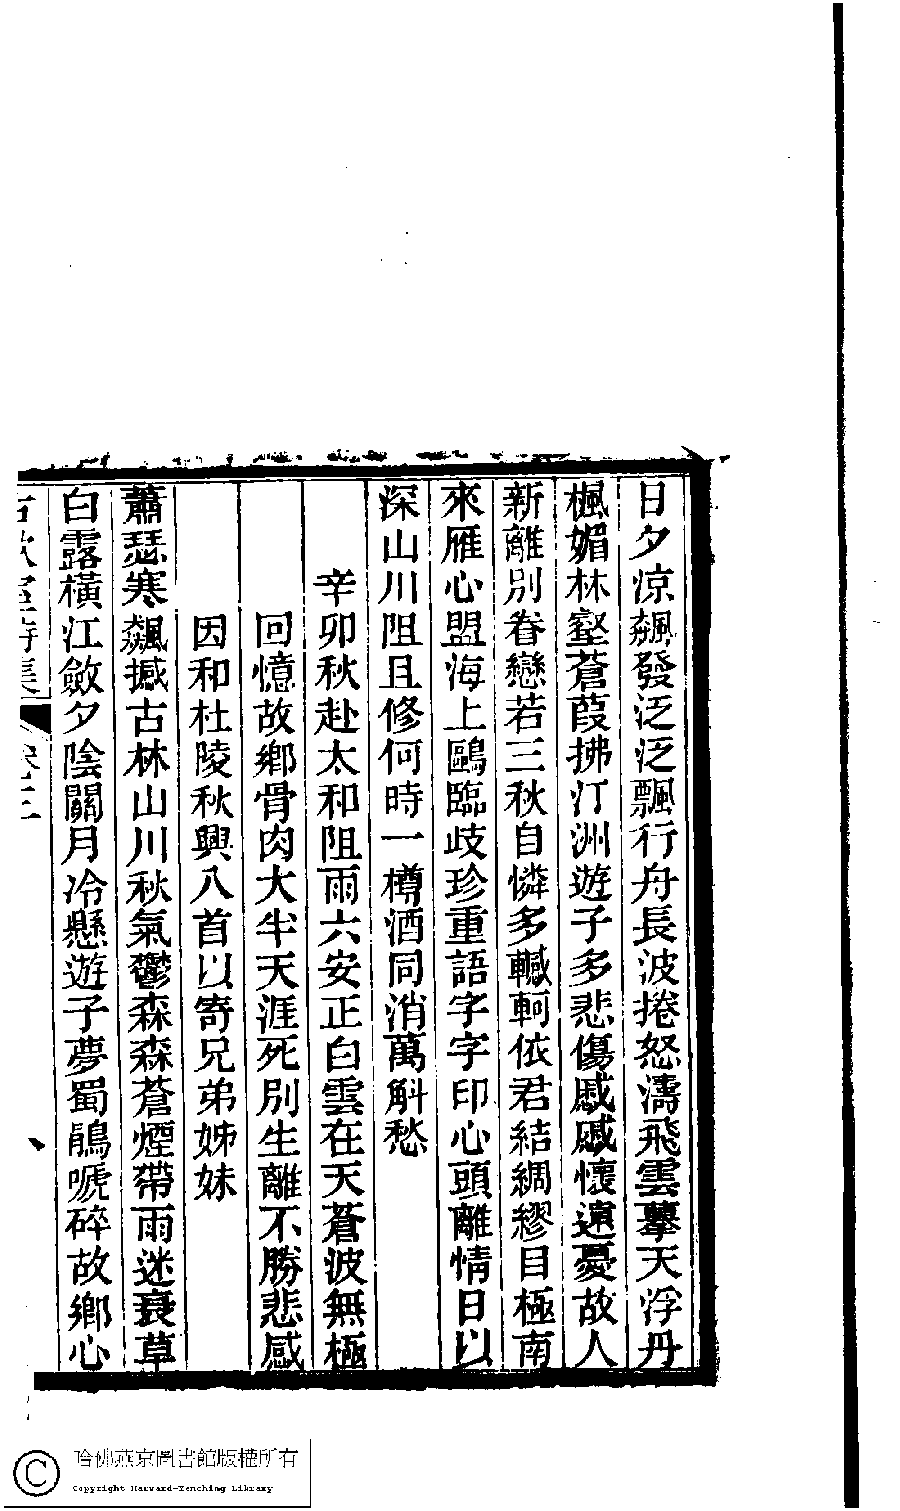 日夕涼飆發泛泛飄行舟長波捲怒濤飛雲摹天浮丹
楓媚林壑蒼葭拂汀洲遊子多悲傷慼慼懷遠憂故人
新離別眷戀若三秋自憐多轗軻依君結綢繆目極南
來雁心盟海上鷗臨歧珍重語字字印心頭離情日以
深山川阻且修何時一樽酒同消萬斛愁
辛卯秋赴太和阻雨六安正白雲在天蒼波無極
回憶故鄉骨肉大半天涯死別生離不勝悲感
因和杜陵秋興八首以寄兄弟姊妹
蕭瑟寒飆撼古林山川秋氣鬱森森蒼煙帶雨迷衰草
白露橫江斂夕陰關月冷懸遊子夢蜀鵑嗁碎故鄉心
哈佛燕京圖書館版權所有
Copyright Harvard-Yenching Library